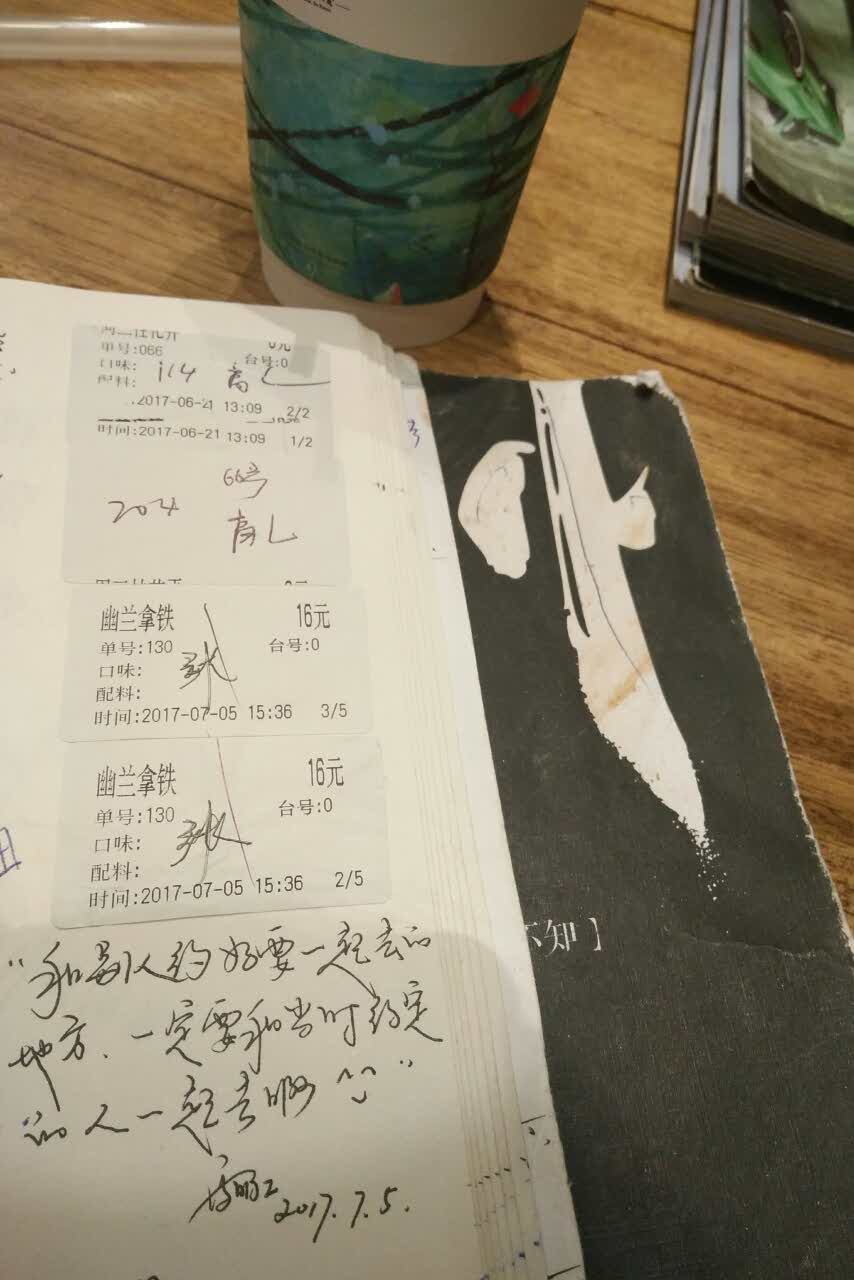 单号:066
台号:0
口味:
配料:
2017-06-21 13:09 2/2
时间:2017-06-21 13:09 1/2
66号
204
幽兰拿铁 16元
单号:130 台号:0
口味:
配料:
时间:2017-07-05 15:36 3/5
幽兰拿铁 16元
单号:130 台号:0
口味:
配料:
时间:2017-07-05 15:36 2/5
不知】
“和别人约好要一起去的
地方、一定要和当时约定
的人一起去啊^^”
2017.7.5.